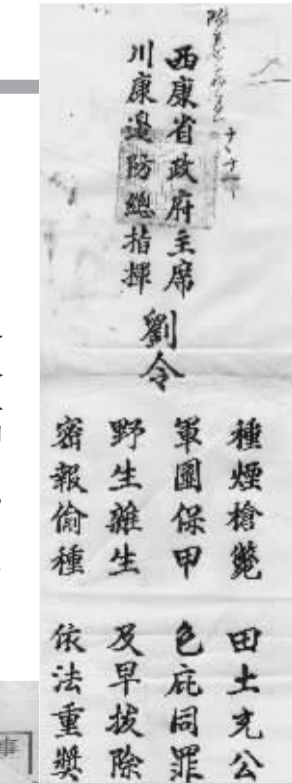 西康省政府主席
川康邊防總指揮
劉令
種煙槍斃 田土充公
軍團保甲 包庇同罪
野生雜生 及早拔除
密報偷種 依法重獎
事